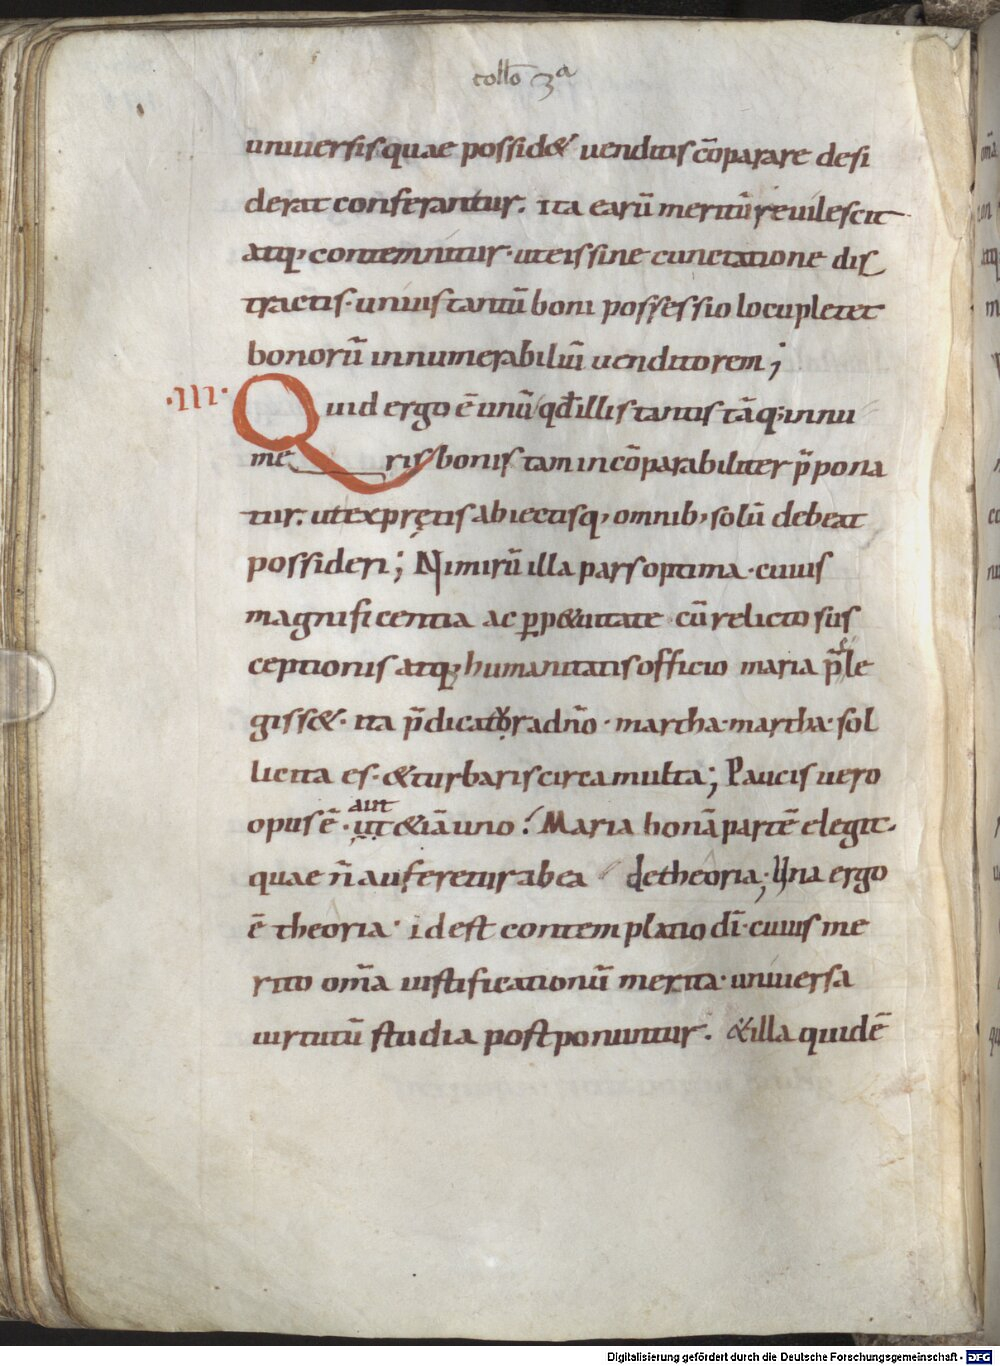 collo 3a
uniuersis quae possid& uenditis cōparare desi
derat conferantur. ita earū meritū reuilescit
atq; contemnitur· ut eis sine cunctatione dis
tractis· unius tantū boni possessio locupletet
bonorū innumerabiliū uenditorem;
·III· Quid ergo ē unū qđ illis tantis tāq; innu
me ris bonis tam incōparabiliter p̄pona
tur. ut ex pręciis abiectisq; omnib; solū debeat
possideri; Nimirū illa pars optima· cuius
magnificentia ac ꝑp&uitate cū relicto sus
ceptionis atq; humanitatis officio maria p̄ele
giss&· ita p̄dicatur a dn̄o· martha· martha· sol
licita es· &turbaris circa multa; Paucis uero
opus ē· aut ut &iā uno. Maria bonā partē elegit.
quae n̄ auferetur ab ea de theoria; Una ergo
ē theoria· id est contemplatio dī· cuius me
rito om̄a iustificationū merita· uniuersa
uirtutū studia postponuntur. &illa quidē
Digitalisierung gefördert durch die Deutsche Forschungsgemeinschaft - DFG